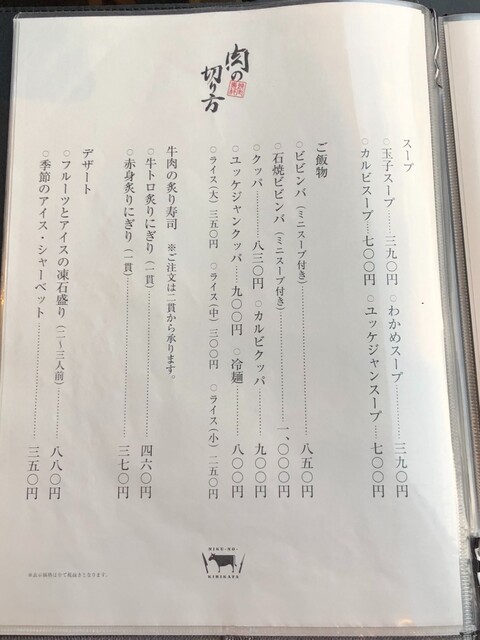 肉の
切り方
スープ
○玉子スープ……三九〇円 ○わかめスープ…………三九〇円
○カルビスープ…七〇〇円 ○ユッケジャンスープ…七〇〇円
ご飯物
○ビビンバ（ミニスープ付き）…………………………八五〇円
○石焼ビビンバ（ミニスープ付き）…………………一、〇〇〇円
○クッパ…………八三〇円 ○カルビクッパ…………九〇〇円
○ユッケジャンクッパ…九〇〇円 ○冷麺…………八〇〇円
○ライス（大）三五〇円 ○ライス（中）三〇〇円 ○ライス（小）二五〇円
牛肉の炙り寿司 ※ご注文は二貫から承ります。
○牛トロ炙りにぎり（一貫）…………………………四六〇円
○赤身炙りにぎり（一貫）……………………………三七〇円
デザート
○フルーツとアイスの凍石盛り（二〜三人前）………八八〇円
○季節のアイス・シャーベット………………………三五〇円
NIKU-NO-
KIRIKATA